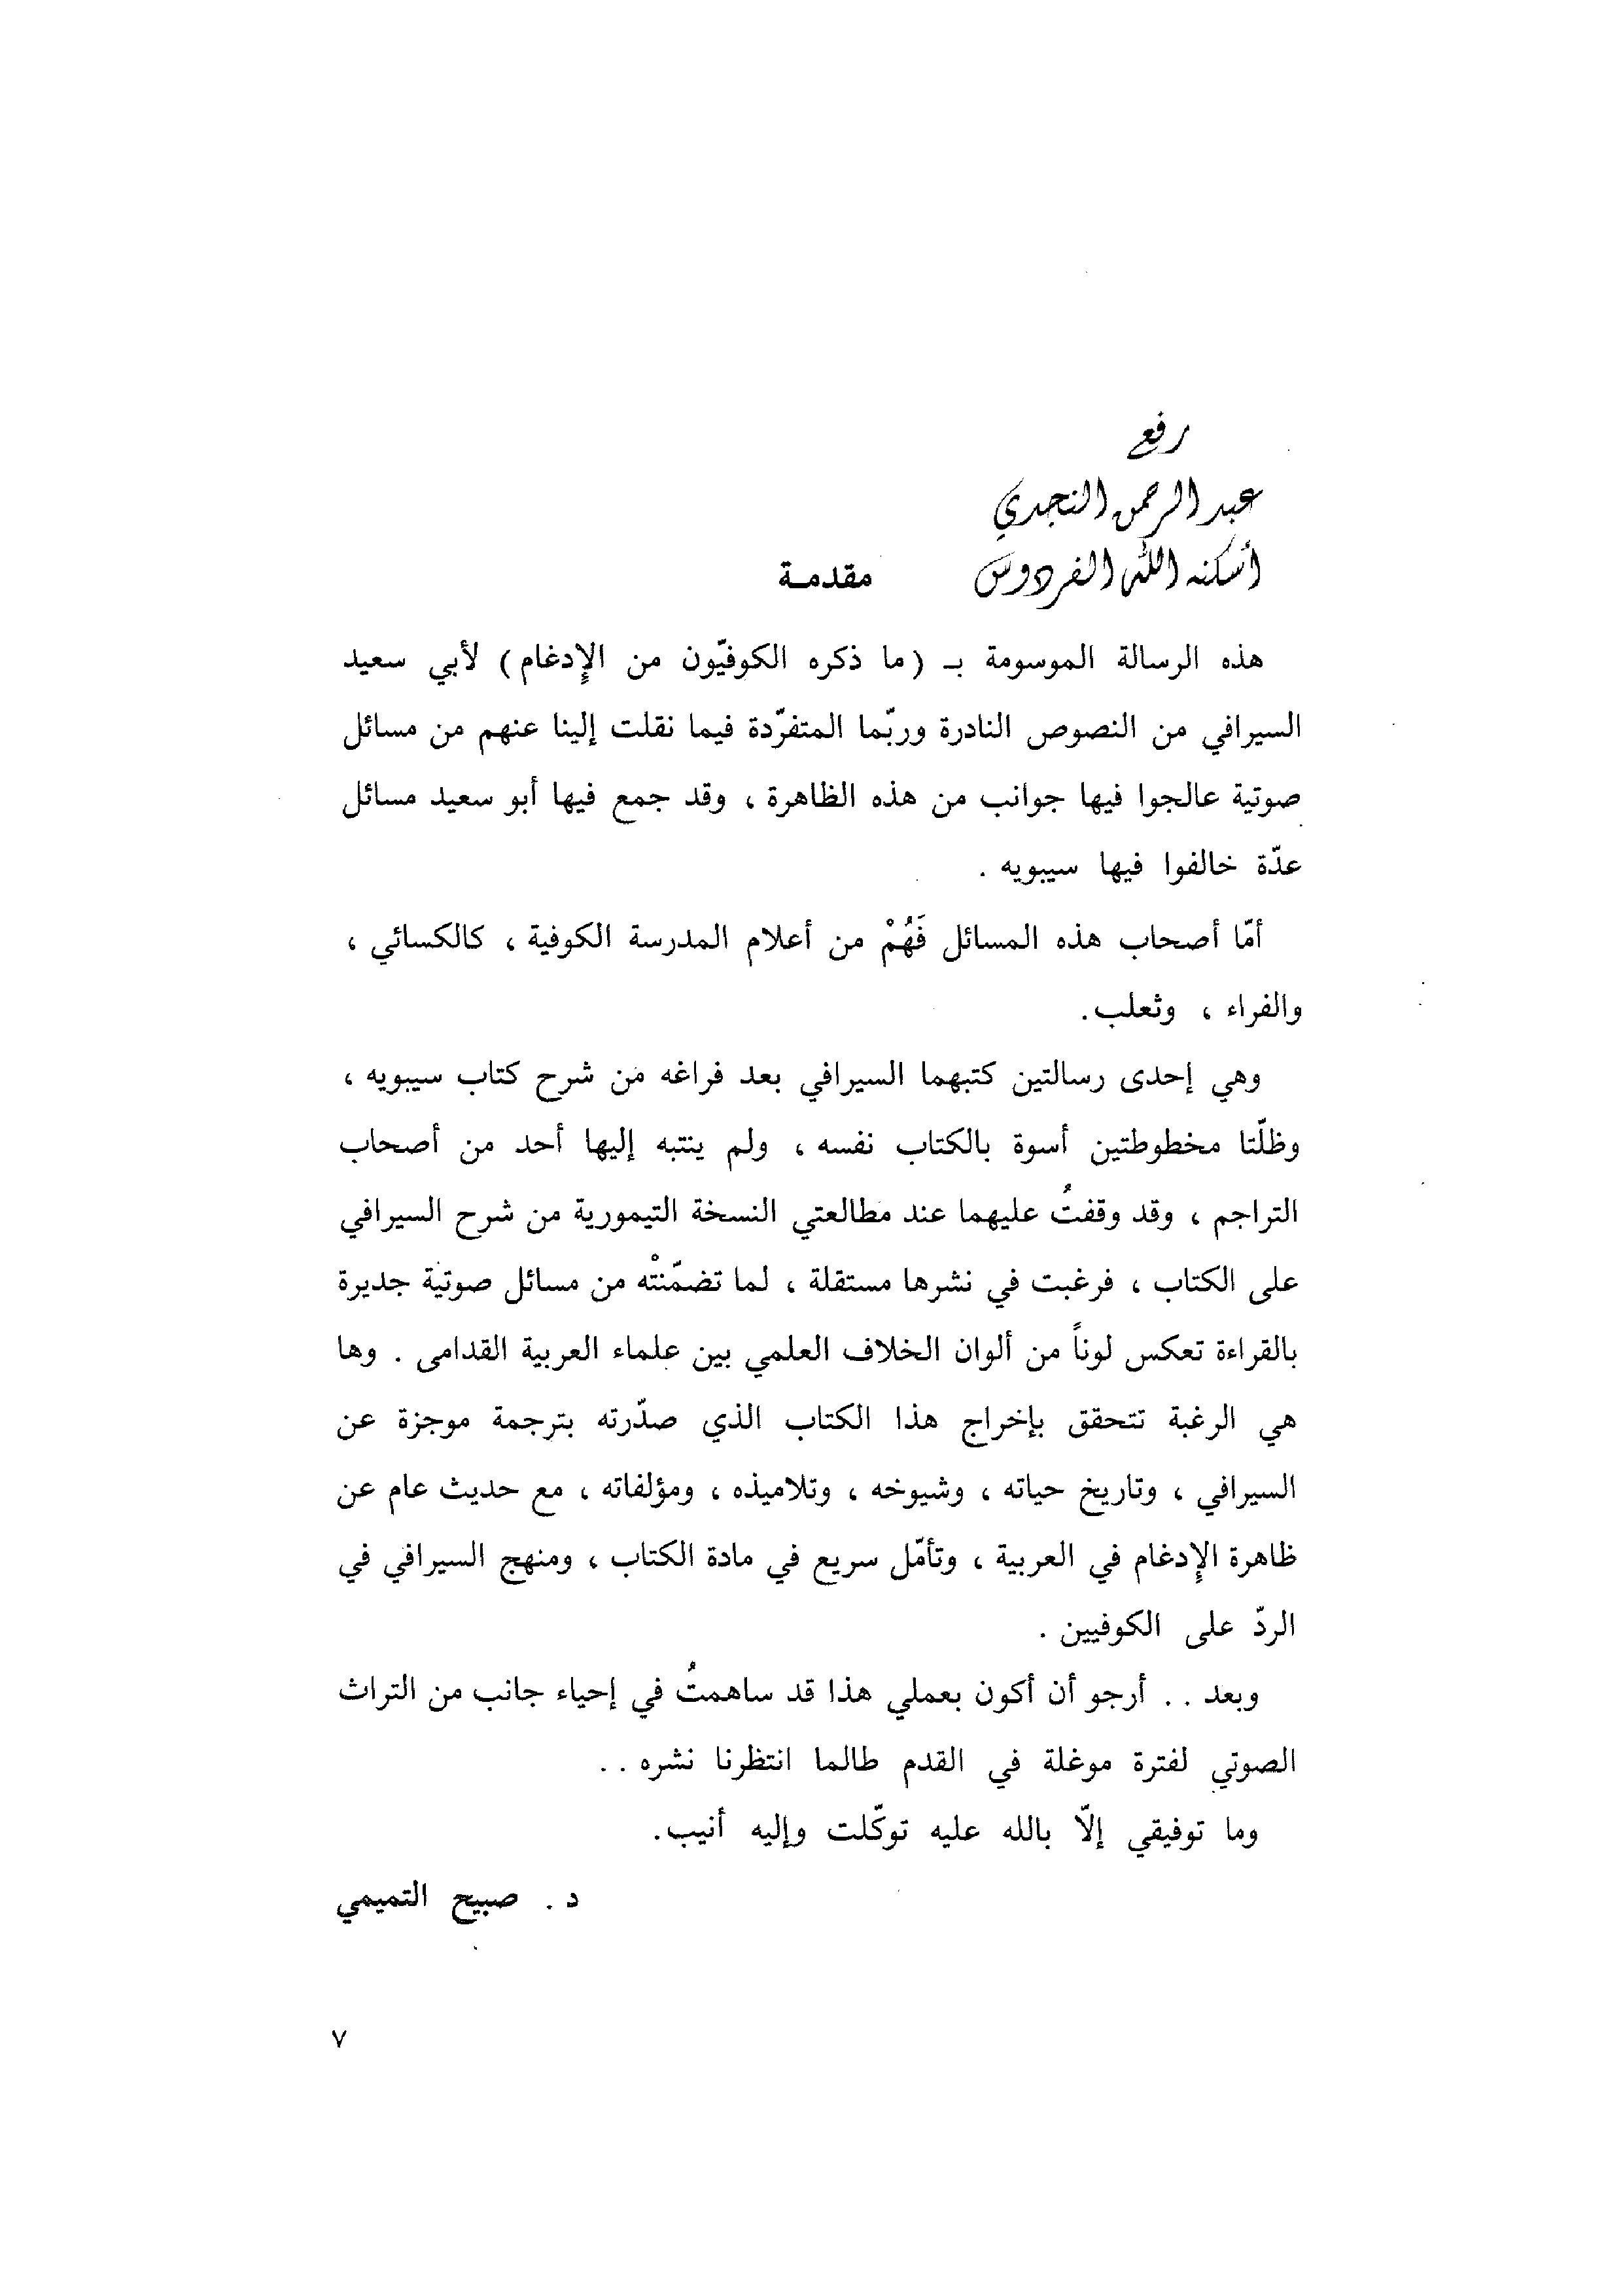 رفع
عبد الرحمن النجدي
أسكنه الله الفردوس
مقدمـة
هذه الرسالة الموسومة بـ (ما ذكره الكوفيّون من الإِدغام) لأبي سعيد
السيرافي من النصوص النادرة وربّما المتفرّدة فيما نقلت إلينا عنهم من مسائل
صوتية عالجوا فيها جوانب من هذه الظاهرة ، وقد جمع فيها أبو سعيد مسائل
عدّة خالفوا فيها سيبويه .
أمّا أصحاب هذه المسائل فَهُمْ من أعلام المدرسة الكوفية ، كالكسائي ،
والفراء ، وثعلب.
وهي إحدى رسالتين كتبهما السيرافي بعد فراغه من شرح كتاب سيبويه ،
وظلّتا مخطوطتين أسوة بالكتاب نفسه ، ولم ينتبه إليها أحد من أصحاب
التراجم ، وقد وقفتُ عليهما عند مطالعتي النسخة التيمورية من شرح السيرافي
على الكتاب ، فرغبت في نشرها مستقلة ، لما تضمّنتْه من مسائل صوتية جديرة
بالقراءة تعكس لوناً من ألوان الخلاف العلمي بين علماء العربية القدامى . وها
هي الرغبة تتحقق بإخراج هذا الكتاب الذي صدّرته بترجمة موجزة عن
السيرافي ، وتاريخ حياته ، وشيوخه ، وتلاميذه ، ومؤلفاته ، مع حديث عام عن
ظاهرة الإِدغام في العربية ، وتأمّل سريع في مادة الكتاب ، ومنهج السيرافي في
الردّ على الكوفيين .
وبعد . . أرجو أن أكون بعملي هذا قد ساهمتُ في إحياء جانب من التراث
الصوتي لفترة موغلة في القدم طالما انتظرنا نشره . .
وما توفيقي إلّا بالله عليه توكّلت وإليه أنيب.
د . صبيح التميمي
٧